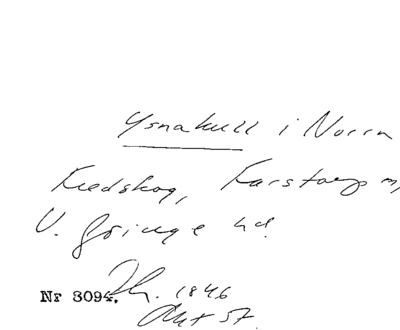 Ysnakull i Norra
Kedskog, Farstorp
V. Göinge hd.
Nr 3094. 1846